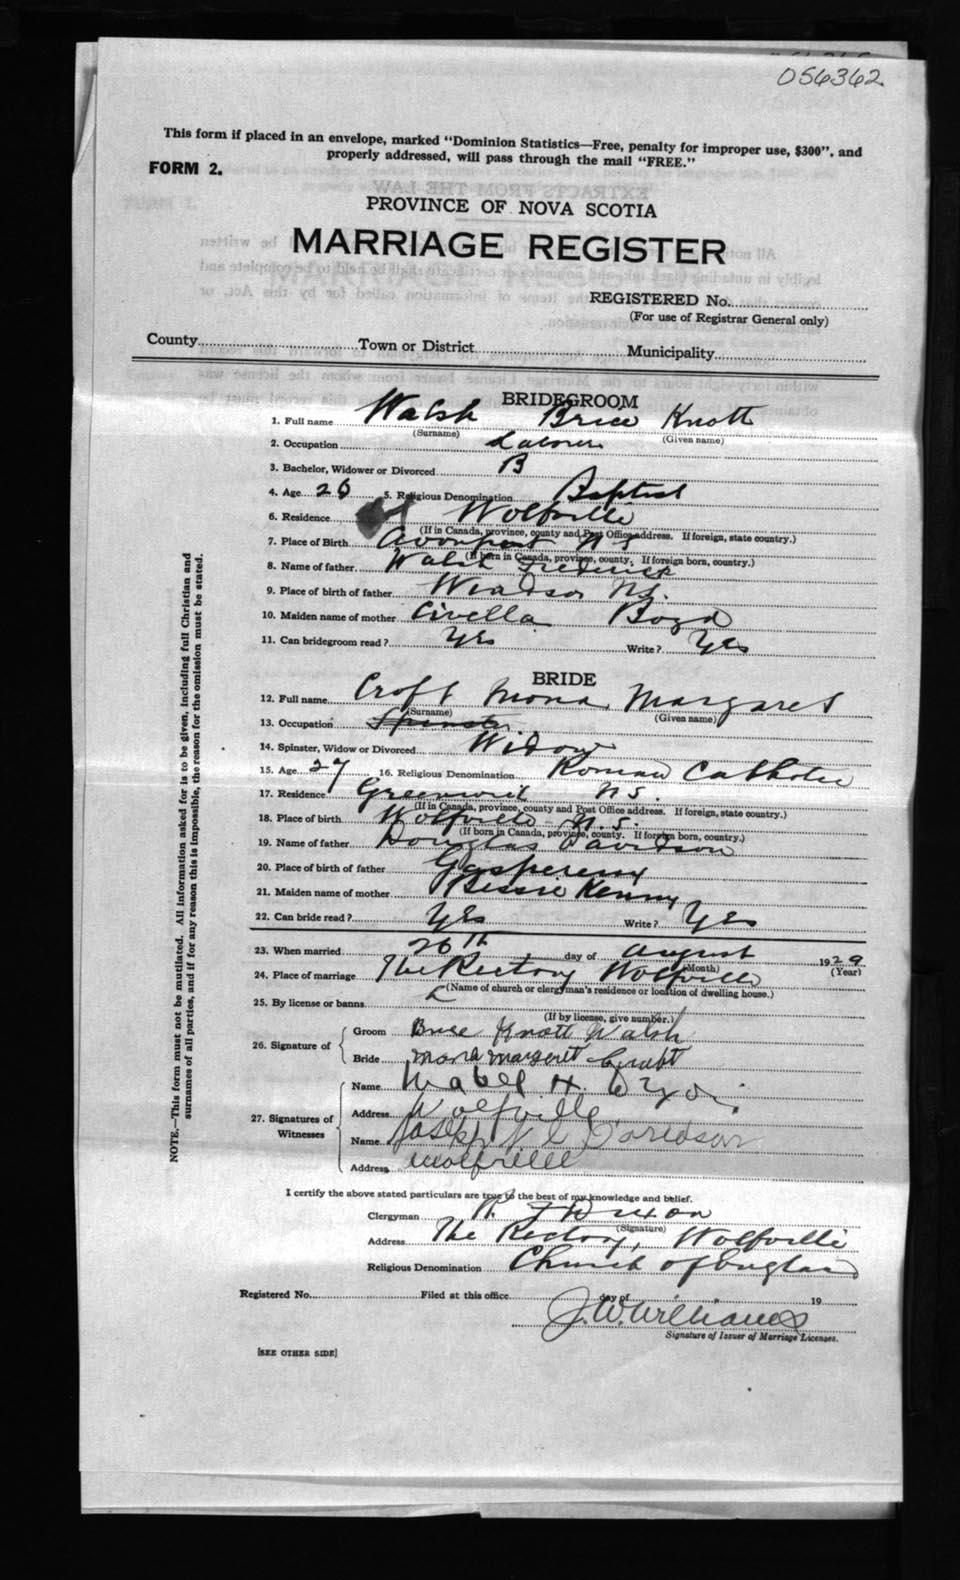 056362
This form if placed in an envelope, marked "Dominion Statistics—Free, penalty for improper use, $300", and
properly addressed, will pass through the mail "FREE."
FORM 2.
PROVINCE OF NOVA SCOTIA
MARRIAGE REGISTER
REGISTERED No.
(For use of Registrar General only)
County Town or District Municipality
BRIDEGROOM
1. Full name Walsh Brice Knott
(Surname) (Given name)
2. Occupation Laborer
3. Bachelor, Widower or Divorced B
4. Age 26 5. Religious Denomination Baptist
6. Residence Wolfville
(If in Canada, province, county and Post Office address. If foreign, state country.)
7. Place of Birth Avonport N S
(If born in Canada, province, county. If foreign born, country.)
8. Name of father Walsh Frederick
9. Place of birth of father Windsor N.S.
10. Maiden name of mother Civella Boyd
11. Can bridegroom read? Yes Write? Yes
BRIDE
12. Full name Croft Mona Margaret
(Surname) (Given name)
13. Occupation Spinster
14. Spinster, Widow or Divorced Widow
15. Age 27 16. Religious Denomination Roman Catholic
17. Residence Greenwich N.S.
(If in Canada, province, county and Post Office address. If foreign, state country.)
18. Place of birth Wolfville N.S.
(If born in Canada, province, county. If foreign born, country.)
19. Name of father Douglas Davidson
20. Place of birth of father Gaspereau
21. Maiden name of mother Bessie Kenny
22. Can bride read? Yes Write? Yes
23. When married 26th day of August 1929
(Month) (Year)
24. Place of marriage The Rectory Wolfville
(Name of church or clergyman's residence or location of dwelling house.)
25. By license or banns L
(If by license, give number.)
26. Signature of Groom Brice Knott Walsh
Bride Mona Margaret
27. Signatures of Witnesses Name Mabel H.
Address Wolfville
Name Joseph Davidson
Address Wolfville
I certify the above stated particulars are true to the best of my knowledge and belief.
Clergyman R F Dixon
(Signature)
Address The Rectory, Wolfville
Religious Denomination Church of England
Registered No. Filed at this office day of 19
J. W. Williams
Signature of Issuer of Marriage Licenses.
[SEE OTHER SIDE]
NOTE.—This form must not be mutilated. All information asked for is to be given, including full Christian and
surnames of all parties, and if for any reason this is impossible, the reason for the omission must be stated.